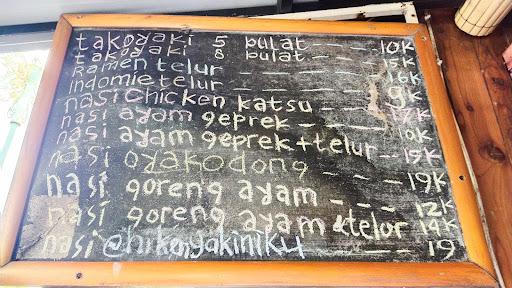 takoyaki 5 bulat --- 10K
takoyaki 8 bulat --- 15K
Ramen telur ------ 16K
Indomie telur ------ 9K
nasi chicken katsu --- 17K
nasi ayam geprek ---
nasi ayam geprek + telur -- 19K
nasi oyakodong ---- 19K
nasi goreng ayam --- 12K
nasi goreng ayam & telor 14K
nasi ---- 19